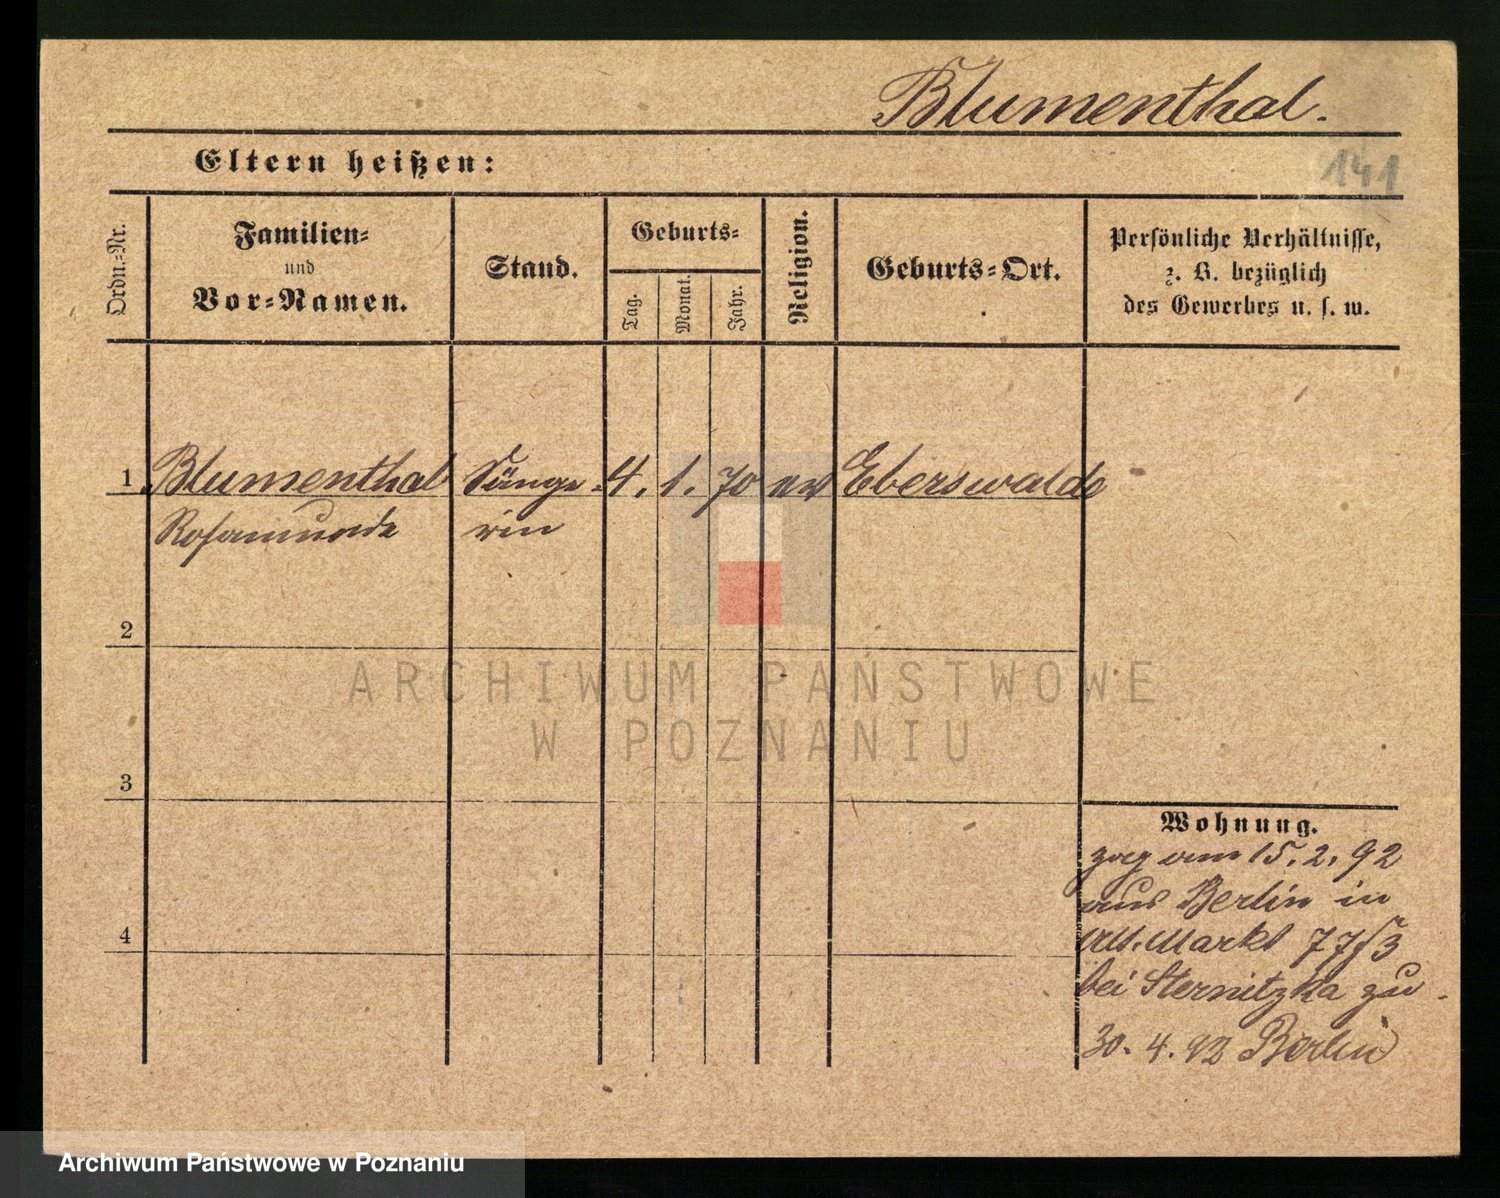 Blumenthal.
Eltern heißen:
141
Ordn.-Nr.
Familien-
und
Vor-Namen.
Stand.
Geburts-
Tag.
Monat.
Jahr.
Religion.
Geburts-Ort.
Persönliche Verhältnisse,
z. B. bezüglich
des Gewerbes u. s. w.
1 Blumenthal Sänge- 4. 1. 70 ev Eberswalde
Rosamunde rin
2
ARCHIWUM PAŃSTWOWE
W POZNANIU
3
Wohnung.
zog am 15. 2. 92
aus Berlin in
Alt. Markt 77/3
bei Sternitzka zu.
4
30. 4. 92 Berlin
Archiwum Państwowe w Poznaniu